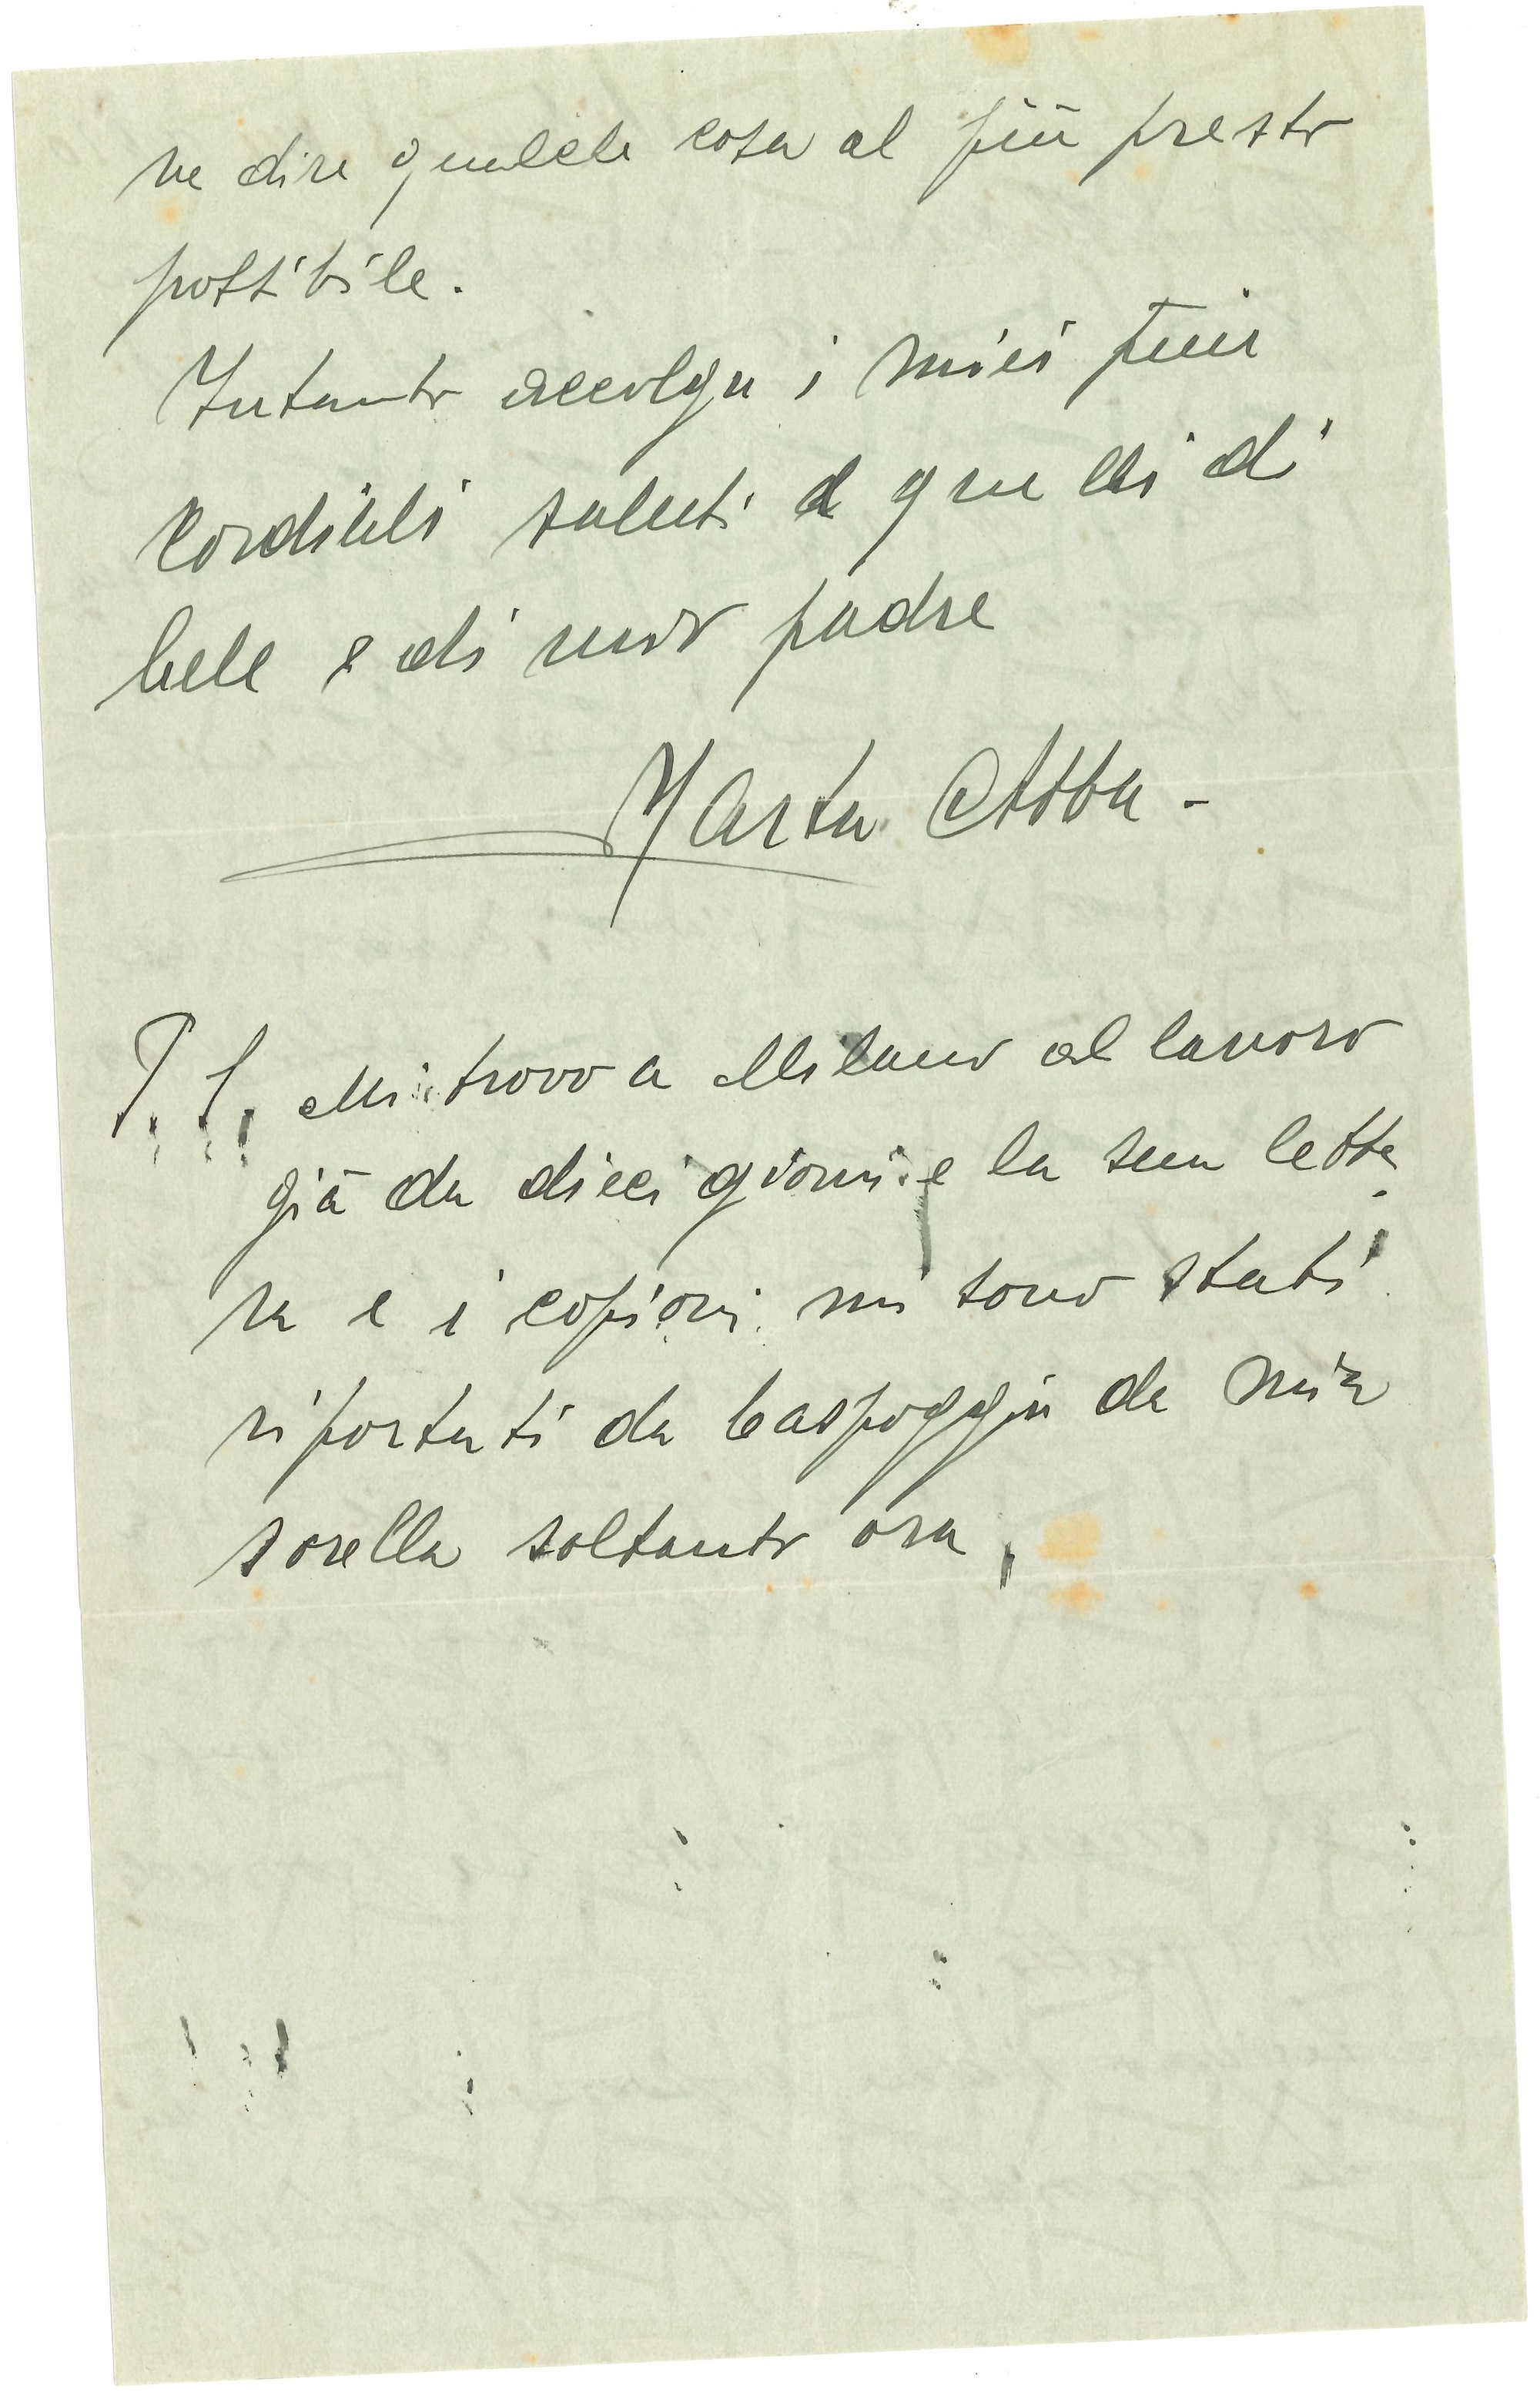 ne dire qualche cosa al più presto
possibile.
Intanto accolga i miei più
cordiali saluti e quelli di
Cele e di mio padre
Marta Abba -
P. S. Mi trovo a Milano al lavoro
già da dieci giorni e la sua lette-
ra e i copioni mi sono stati
riportati da Caspoggio da mia
sorella soltanto ora.